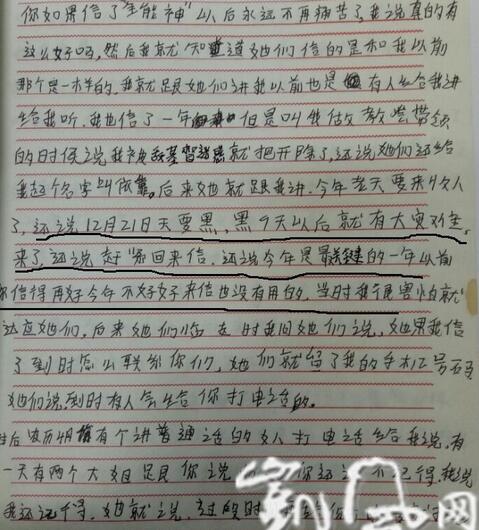 你如果信了"全能神"以后永远不再痛苦了,我说真的有
这么好吗,然后我就知道她们信的是和我以前
那个是一样的,我就跟她们讲我以前也是有人给我讲
给我听,我也信了一年 但是叫我做教堂带领
的时候说我被 就把开除了,还说她们还给
我起个名字叫依靠。后来她就跟我讲,今年老天要来收人
了,还说12月21日天要黑,黑9天以后就有大灾难
来了,还说赶 回来信,还说今年是最关键的一年以前
你信得再好今年不好好来信也没有用的,当时我很害怕就
答应她们,后来她们临走时我问她们说,如果我信
了到时怎么联系你们,她们就留了我的手机号码
她们说,到时有人会给你打电话的。
后 有个讲普通话的女人打电话给我说,有
一天有两个大姐跟你说 你还记不记得,我说
我还记得,她就说,过段时
凯风网